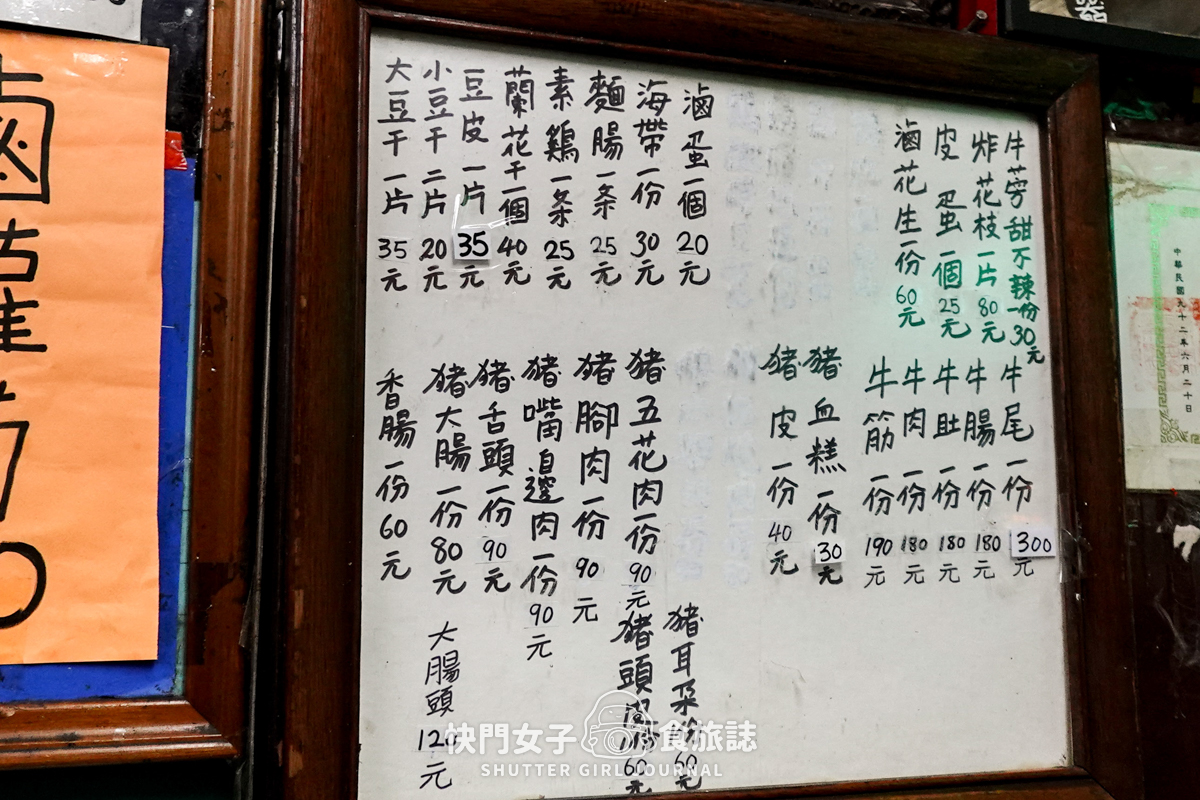 牛蒡甜不辣一份30元
炸花枝一片80元
皮蛋一個25元
滷花生一份60元
滷蛋一個20元
海帶一份30元
麵腸一条25元
素鷄一条25元
蘭花干一個40元
豆皮一片35元
小豆干二片20元
大豆干一片35元
牛尾一份300元
牛腸一份180元
牛肚一份180元
牛肉一份180元
牛筋一份190元
豬血糕一份30元
豬皮一份40元
豬五花肉一份90元
豬腳肉一份90元
豬嘴邊肉一份90元
豬舌頭一份90元
豬大腸一份80元
香腸一份60元
豬耳朵一份60元
豬頭皮一份60元
大腸頭120元
中華民國九十二年六月二十日
快門女子 食旅誌
SHUTTER GIRL JOURNAL